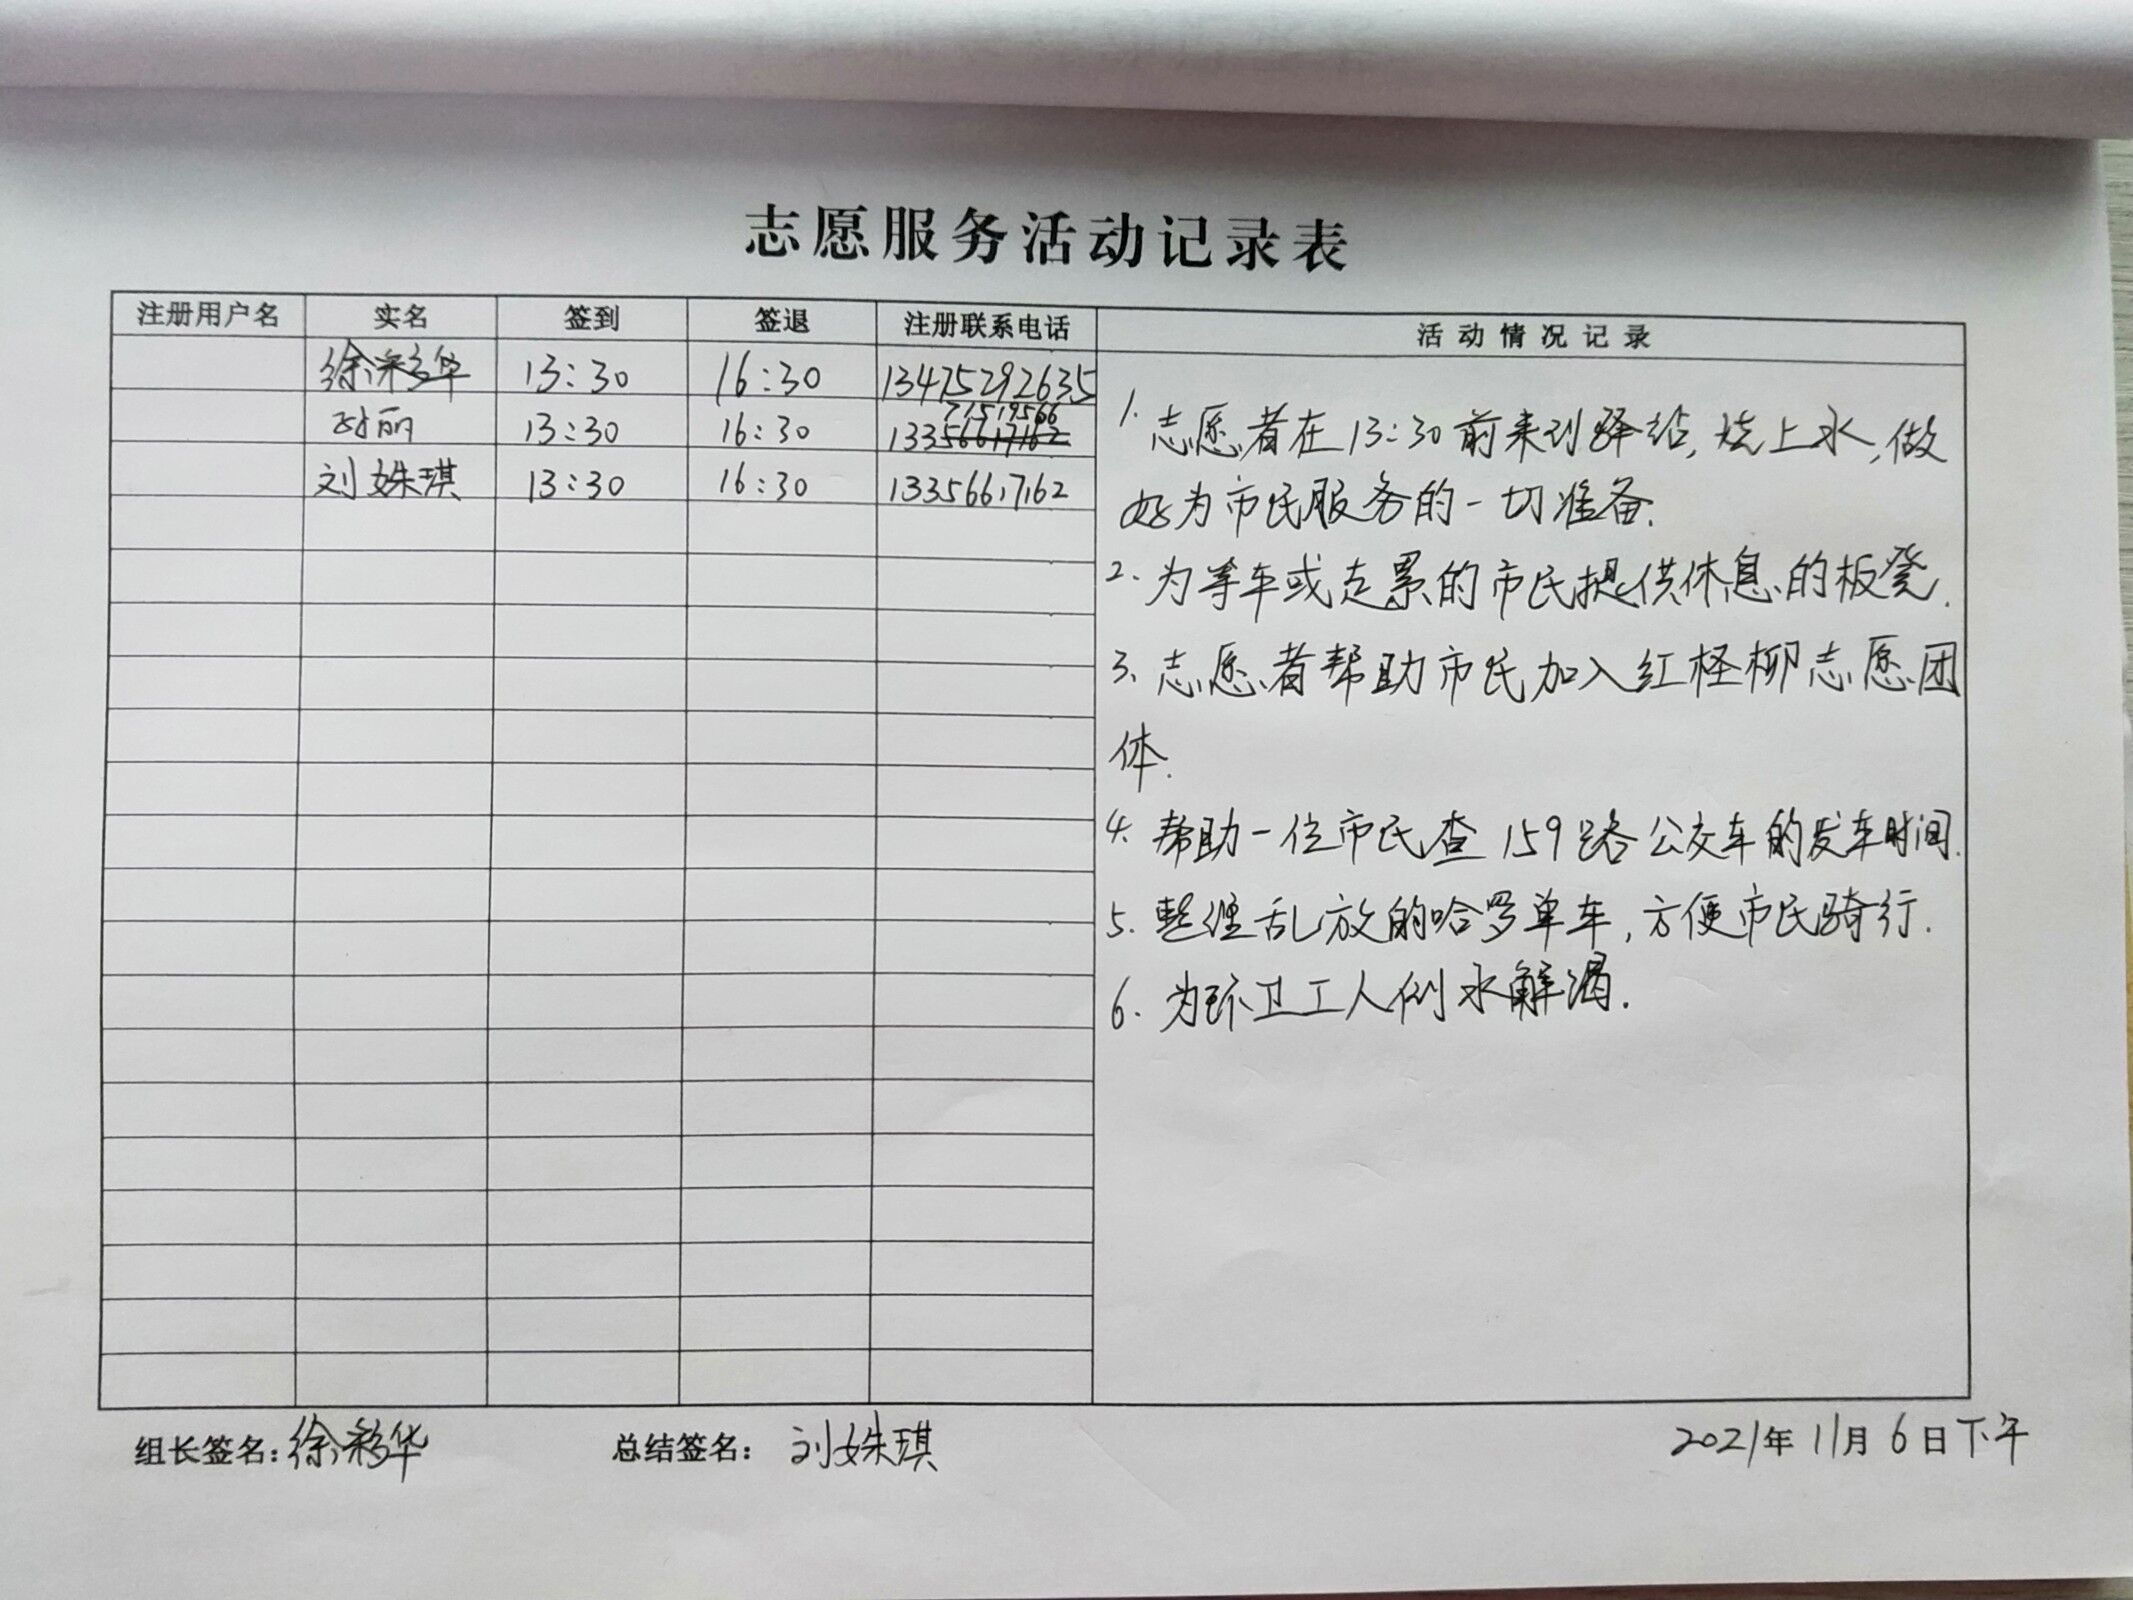 志愿服务活动记录表
注册用户名 实名 签到 签退 注册联系电话 活动情况记录
徐彩华 13:30 16:30 13475292635
丽 13:30 16:30 133
71519566
刘姝琪 13:30 16:30 13356617162
1. 志愿者在13:30前来到驿站,烧上水,做
好为市民服务的一切准备.
2. 为等车或走累的市民提供休息的板凳.
3. 志愿者帮助市民加入红柽柳志愿团
体.
4. 帮助一位市民查159路公交车的发车时间.
5. 整理乱放的哈罗单车,方便市民骑行.
6. 为环卫工人倒水解渴.
组长签名:徐彩华 总结签名: 刘姝琪 2021年11月6日下午